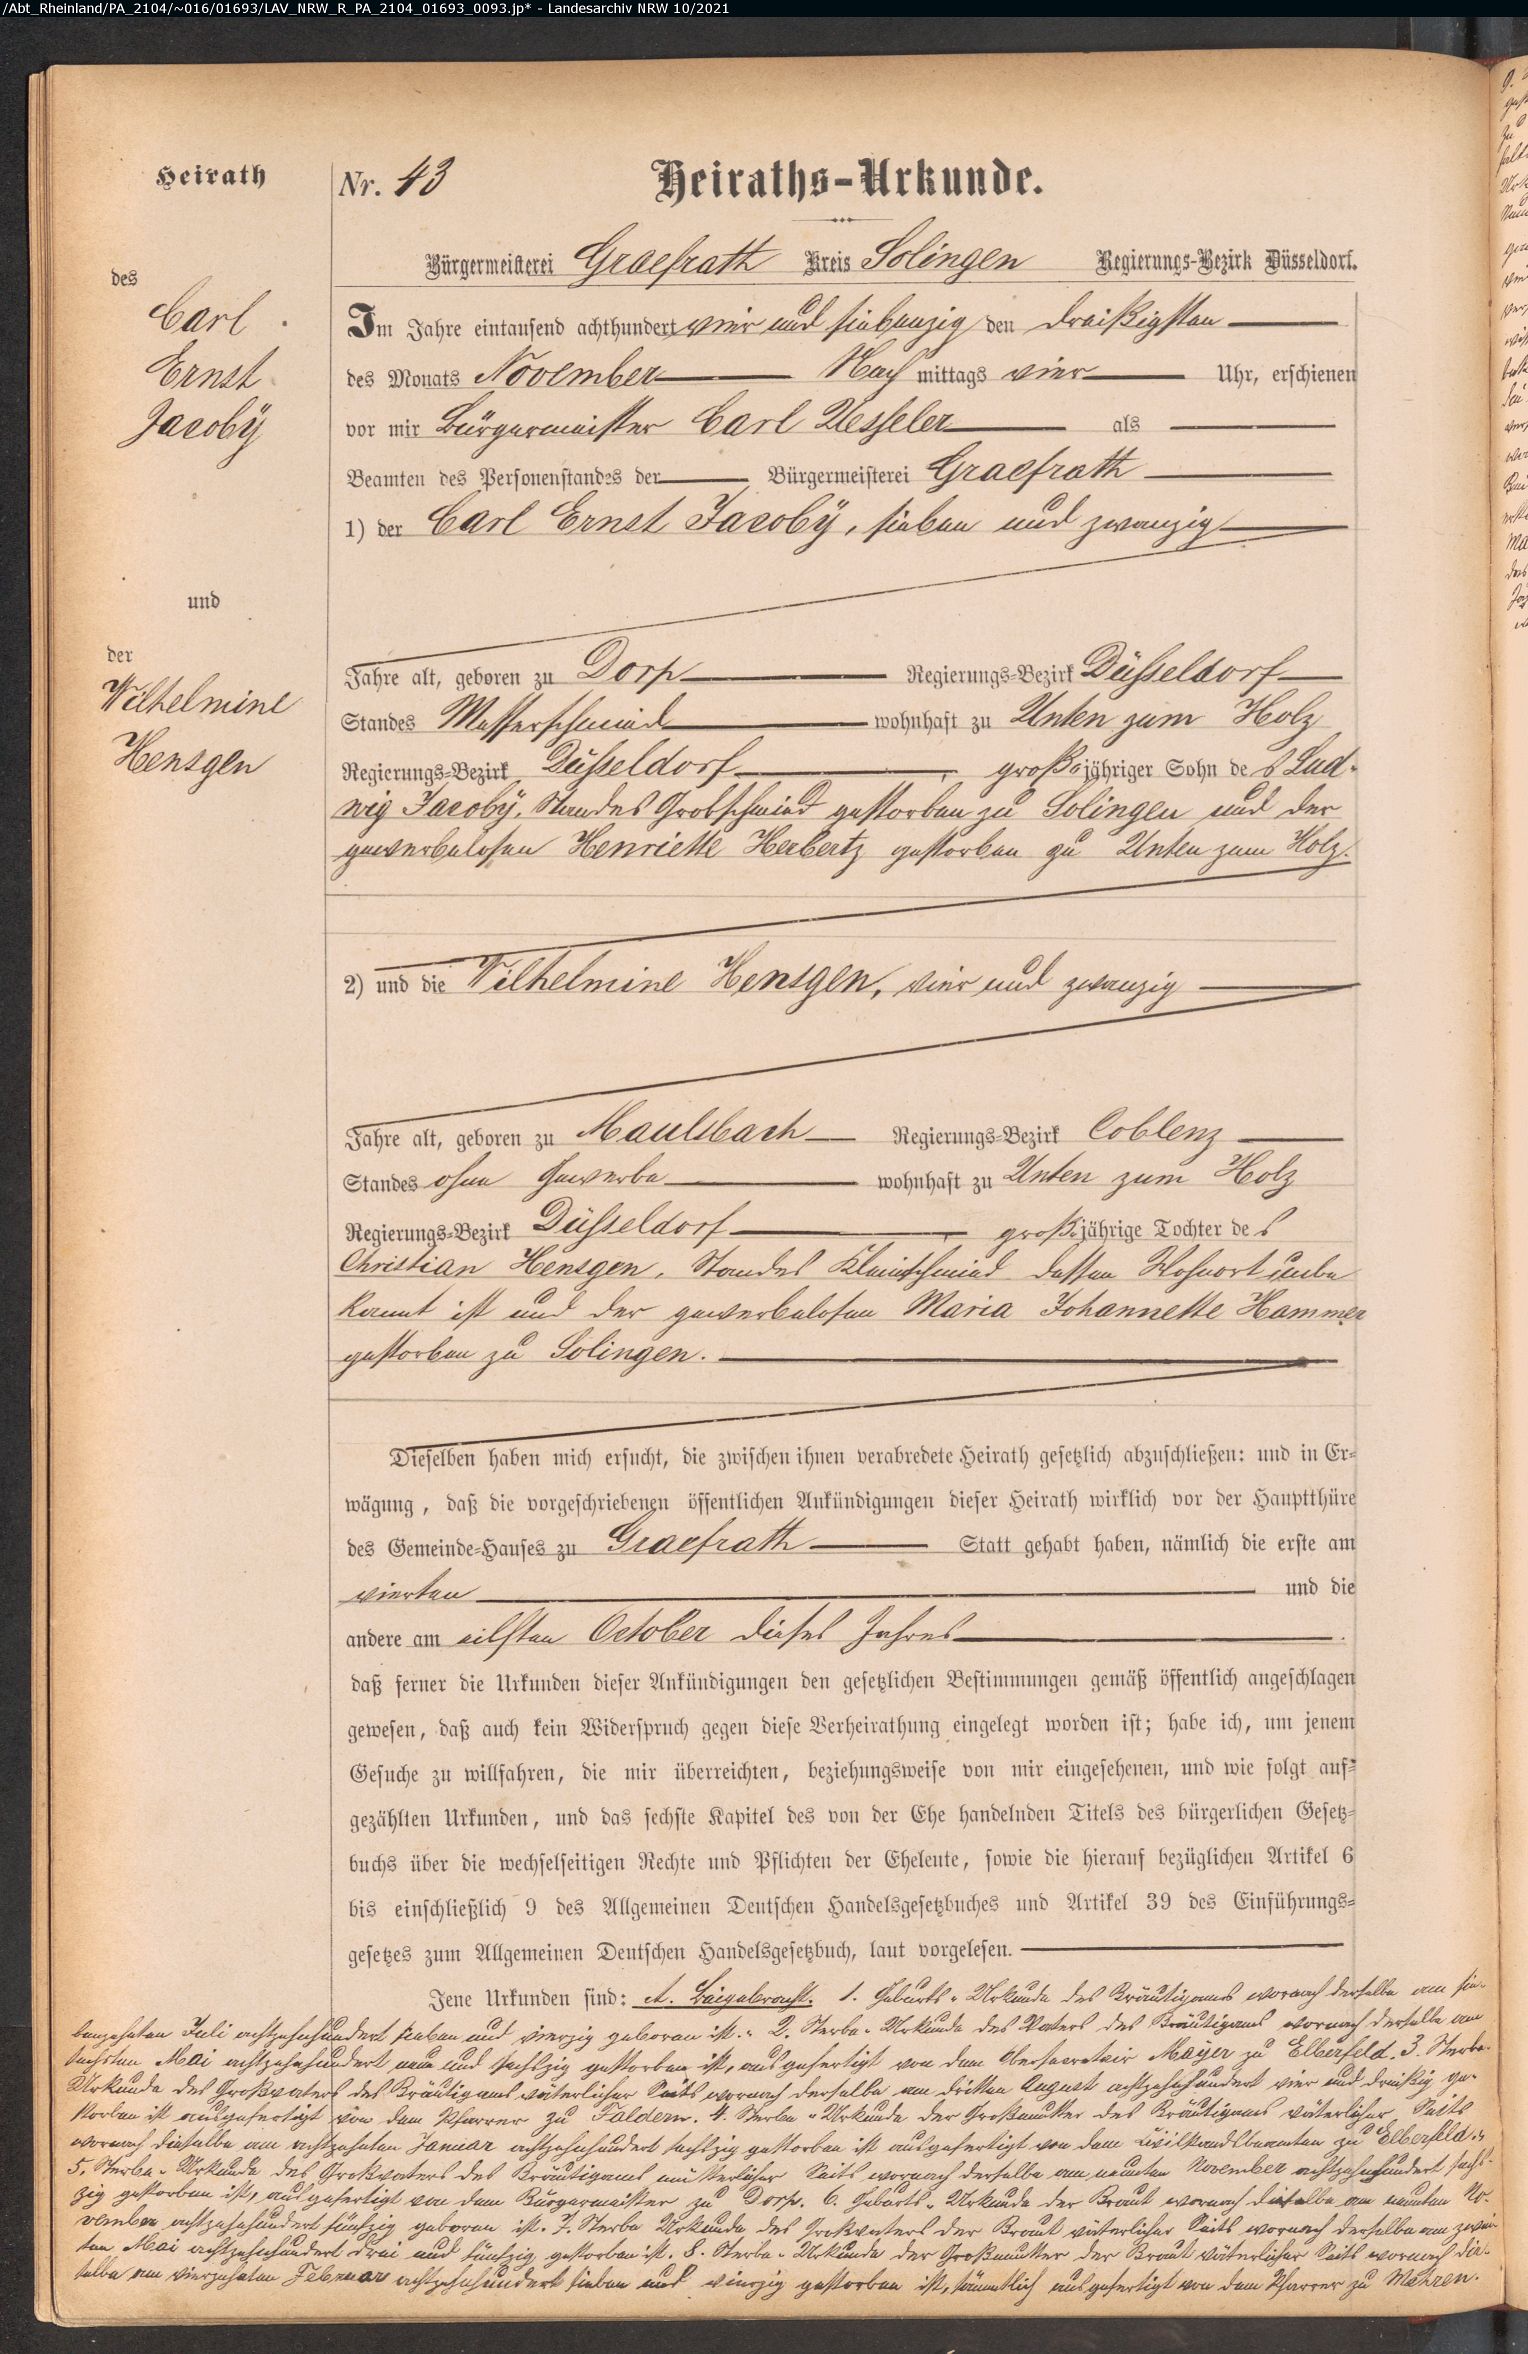 /Abt_Rheinland/PA_2104/~016/01693/LAV_NRW_R_PA_2104_01693_0093.jp* - Landesarchiv NRW 10/2021
Heirath
des
Carl
Ernst
Jacobÿ
und
der
Wilhelmine
Hensgen
Nr. 43 Heiraths-Urkunde.
Bürgermeisterei Graefrath Kreis Solingen Regierungs-Bezirk Düsseldorf.
Im Jahre eintausend achthundert vier und siebenzig den dreißigsten
des Monats November Nach mittags vier Uhr, erschienen
vor mir Bürgermeister Carl Uesseler als
Beamten des Personenstandes der Bürgermeisterei Graefrath
1) der Carl Ernst Jacobÿ, sieben und zwanzig
Jahre alt, geboren zu Dorp Regierungs-Bezirk Düsseldorf
Standes Messerschmied wohnhaft zu Unten zum Holz
Regierungs-Bezirk Düsseldorf großjähriger Sohn des Lud-
wig Jacobÿ, Standes Grobschmied gestorben zu Solingen und der
gewerbelosen Henriette Herbertz gestorben zu Unten zum Holz.
2) und die Wilhelmine Hensgen, vier und zwanzig
Jahre alt, geboren zu Maulsbach Regierungs-Bezirk Coblenz
Standes ohne Gewerbe wohnhaft zu Unten zum Holz
Regierungs-Bezirk Düsseldorf großjährige Tochter des
Christian Hensgen, Standes Kleinschmied dessen Wohnort unbe
kannt ist und der gewerbelosen Maria Johannette Hammer
gestorben zu Solingen.
Dieselben haben mich ersucht, die zwischen ihnen verabredete Heirath gesetzlich abzuschließen: und in Er-
wägung, daß die vorgeschriebenen öffentlichen Ankündigungen dieser Heirath wirklich vor der Hauptthüre
des Gemeinde-Hauses zu Graefrath Statt gehabt haben, nämlich die erste am
vierten und die
andere am eilften October dieses Jahres
daß ferner die Urkunden dieser Ankündigungen den gesetzlichen Bestimmungen gemäß öffentlich angeschlagen
gewesen, daß auch kein Widerspruch gegen diese Verheirathung eingelegt worden ist; habe ich, um jenem
Gesuche zu willfahren, die mir überreichten, beziehungsweise von mir eingesehenen, und wie folgt auf-
gezählten Urkunden, und das sechste Kapitel des von der Ehe handelnden Titels des bürgerlichen Gesetz-
buchs über die wechselseitigen Rechte und Pflichten der Eheleute, sowie die hierauf bezüglichen Artikel 6
bis einschließlich 9 des Allgemeinen Deutschen Handelsgesetzbuches und Artikel 39 des Einführungs-
gesetzes zum Allgemeinen Deutschen Handelsgesetzbuch, laut vorgelesen.
Jene Urkunden sind: A. Beigebracht. 1. Geburts-Urkunde des Bräutigams wornach derselbe am sie-
benzehnten Juli achtzehnhundert sieben und vierzig geboren ist. 2. Sterbe-Urkunde des Vaters des Bräutigams wornach derselbe am
sechsten Mai achtzehnhundert neun und sechszig gestorben ist, ausgefertigt von dem Obersecretair Mayer zu Elberfeld. 3. Sterbe-
Urkunde des Großvaters des Bräutigams väterlicher Seits wornach derselbe am dritten August achtzehnhundert vier und dreißig ge-
storben ist ausgefertigt von dem Pfarrer zu Faldern. 4. Sterbe-Urkunde der Großmutter des Bräutigams väterlicher Seits
wornach dieselbe am achtzehnten Januar achtzehnhundert sechszig gestorben ist ausgefertigt von dem Civilstandsbeamten zu Elberfeld.
5. Sterbe-Urkunde des Großvaters des Bräutigams mütterlicher Seits wornach derselbe am neunten November achtzehnhundert sechs-
zig gestorben ist, ausgefertigt von dem Bürgermeister zu Dorp. 6. Geburts-Urkunde der Braut wornach dieselbe am neunten No-
vember achtzehnhundert fünfzig geboren ist. 7. Sterbe Urkunde des Großvaters der Braut väterlicher Seits wornach derselbe am zwei
ten Mai achtzehnhundert drei und fünfzig gestorben ist. 8. Sterbe-Urkunde der Großmutter der Braut väterlicher Seits wornach die-
selbe am vierzehnten Februar achtzehnhundert sieben und vierzig gestorben ist, sämmtlich ausgefertigt von dem Pfarrer zu Mehren.